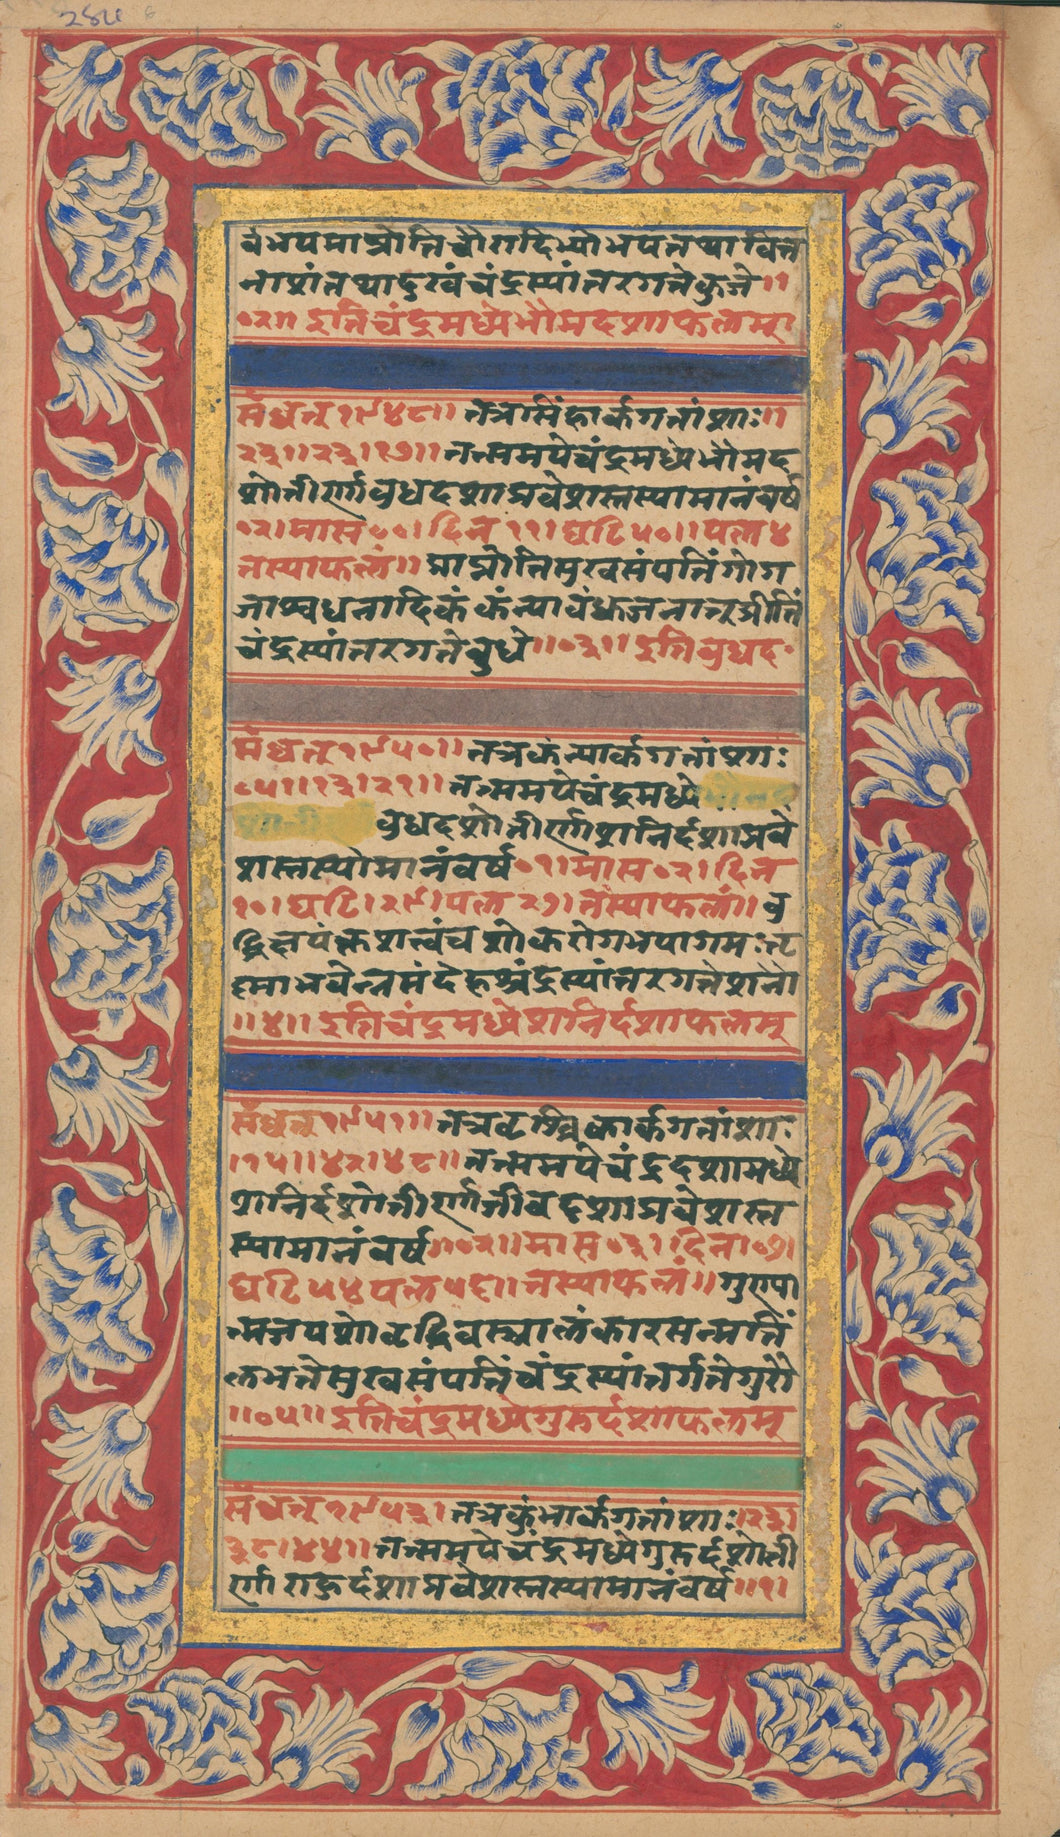 २४५
वंभयमाप्नोति चौरादिभ्यो भयं तथा वित्त
नाशं तथा दुखं चंद्रस्यांतरगते कुजे ॥
०२॥ इति चंद्रमध्ये भौमदशाफलम्
संवत् १९४८॥ तत्र सिंहार्कगतांशाः॥
२३॥२३।१७॥ तत्समये चंद्रमध्ये भौमद
शोत्तीर्ण बुधदशाप्रवेशस्तस्यामानं वर्ष
०२। मास ००। दिन ११। घटि ५०॥ पल ४
तस्याफलं॥ प्राप्नोति सुखसंपत्तिं गोग
जाश्वधनादिकं कंन्यावंधजनात् प्रीतिं
चंद्रस्यांतरगते बुधे॥०३॥ इति बुधद·
संवत् १९५०॥ तत्र कंन्यार्कगतांशाः
०५॥१३।२१॥ तत्समये चंद्रमध्ये भौमद
शोत्तीर्ण बुधदशोत्तीर्ण शनिर्दशाप्रवे
शस्तस्योमानं वर्ष ०१। मास ०२। दिन
१०। घटि। २९। पल २७। तस्याफलं॥ वु
द्धि शोकरोगभयागमः
भवेन्न संदेहश्चंद्रस्यांतरगते शनौ
॥४॥ इति चंद्रमध्ये शनिर्दशाफलम्
संवत् १९५१॥ तत्र वृश्चिकार्कगतांशाः
।१५॥४२।४८॥ तत्समये चंद्रदशामध्ये
शनिर्दशोत्तीर्ण जीवदशाप्रवेशस्त
स्यामानं वर्ष॥०२॥ मास ०३। दिन।०७।
घटि ५४ पल ५६॥ तस्याफलं॥ गुरुपा
वृद्धिवस्त्रालंकारसन्मतिं
लभते सुखसंपत्तिं चंद्रस्यांतर्गते गुरौ
॥०५॥ इति चंद्रमध्ये गुरुर्दशाफलम्
संवत् १९५३। तत्र कुंभार्कगतांशाः॥२३।
३८।४४॥ तत्समये चंद्रमध्ये गुरुर्दशोत्ती
र्ण राहुर्दशाप्रवेशस्तस्यामानं वर्ष॥१।